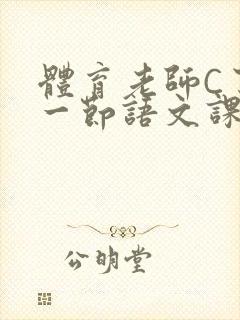 體育老師C
一節語文課
公明堂